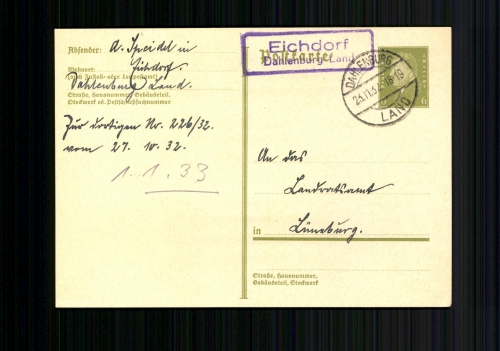 Absender: A. Speidel in
Eichdorf.
Wohnort:
(auch Zustell- oder Leitpostamt)
Dahlenburg Land.
Straße, Hausnummer, Gebäudeteil,
Stockwerk od. Postschließfachnummer
Zur dortigen Nr. 226/32.
vom 27. 10. 32.
1. 1. 33
Postkarte
Eichdorf
Dahlenburg Land
DAHLENBURG
LAND
6
An das
Landratsamt
in Lüneburg.
Straße, Hausnummer,
Gebäudeteil, Stockwerk